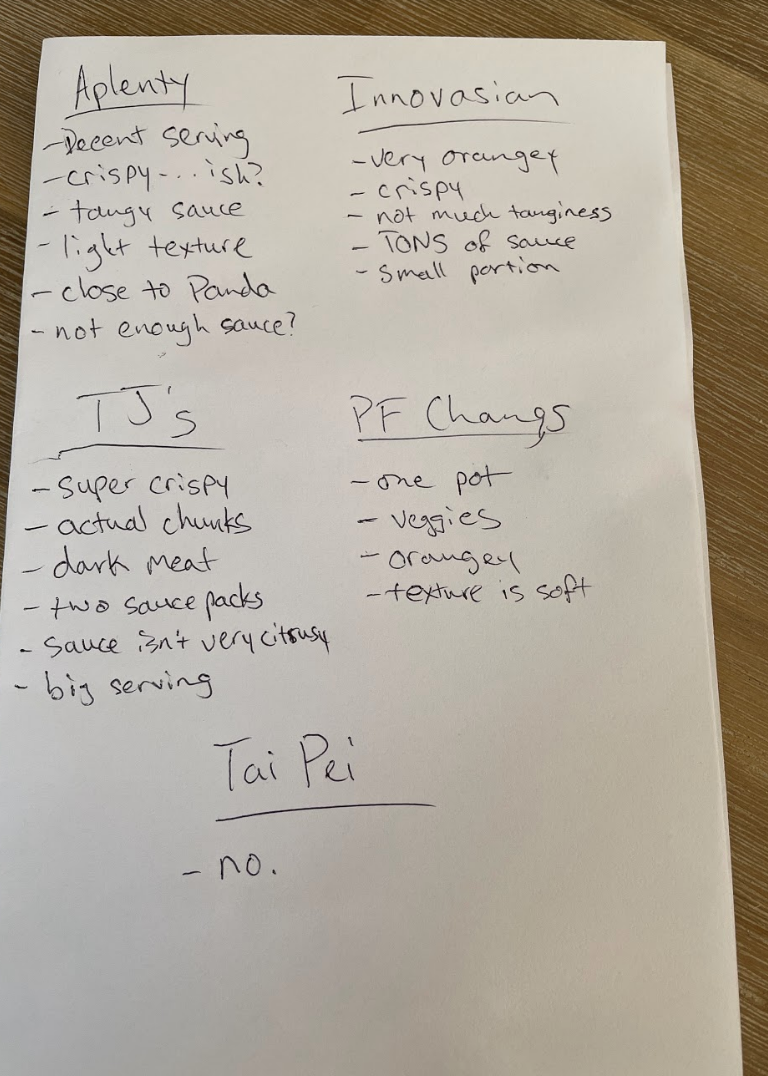 Aplenty
-Decent serving
-crispy-...ish?
- tangy sauce
- light texture
- close to Panda
- not enough sauce?
Innovasian
-very orangey
- crispy
- not much tanginess
- TONS of sauce
- small portion
TJ's
- super crispy
- actual chunks
- dark meat
- two sauce packs
- sauce isn't very citrusy
- big serving
PF Changs
- one pot
- veggies
- orangey
- texture is soft
Tai Pei
- no.